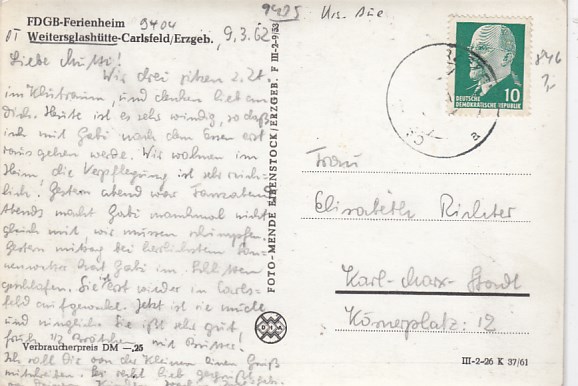 FDGB-Ferienheim
9404
OT Weitersglashütte-Carlsfeld/Erzgeb.
9.3.62
Liebe Mutti!
Wir drei sitzen z. Zt.
im Klubraum, und denken lieb an
Dich. Heute ist es sehr windig, so daß
ich mit Gabi nach dem Essen erst
raus gehen werde. Wir wohnen im
Heim, die Verpflegung ist sehr reich-
lich. Gestern abend war Tanzabend
Abends macht Gabi manchmal nicht
gleich mit, wir müssen schimpfen.
Gestern mittag bei herlichstem Son-
nenwetter hat Gabi im
geschlafen. Sie ist wieder in Carls-
feld aufgewacht. Jetzt ist sie müde
und Sie ißt sehr gut,
früh 1/2 Brötchen mit
Ich soll Dir von der Kleinen einen Gruß
mitteilen. Sei recht lieb gegrüßt
Verbraucherpreis DM —,25
FOTO-MENDE EIBENSTOCK/ERZGEB. F III-2-9/53
9435
Krs. Aue
846
DEUTSCHE
DEMOKRATISCHE REPUBLIK
10
a
Frau
Elisabeth Richter
Karl-Marx-Stadt
Körnerplatz: 12
III-2-26 K 37/61